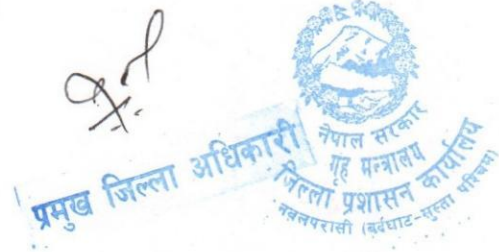 प्रमुख जिल्ला अधिकारी
नेपाल सरकार
गृह मन्त्रालय
जिल्ला प्रशासन कार्यालय
नवलपरासी (बर्दघाट-सुस्ता पश्चिम)